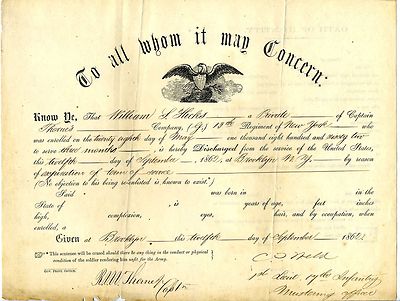 To all whom it may Concern:
Know Ye, That William S Hicks a Private of Captain
Thorne's Company, (G) 13th Regiment of New York who
was enrolled on the twenty eighth day of May one thousand eight hundred and sixty two
to serve three months is hereby Discharged from the service of the United States,
this twelfth day of September, 1862, at Brooklyn N.Y. by reason
of expiration of term of service
(No objection to his being reenlisted is known to exist.)
Said was born in in the
State of is years of age, feet inches
high, complexion, eyes, hair, and by occupation, when
enrolled, a
Given at Brooklyn this twelfth day of September 1862.
This sentence will be erased should there be any thing in the conduct or physical
condition of the soldier rendering him unfit for the Army.
1st Lieut 17th Infantry
Mustering officer
Capt